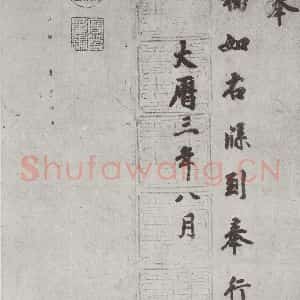 奉
勅如右牒到奉行
大曆三年八月
Shufawang.CN